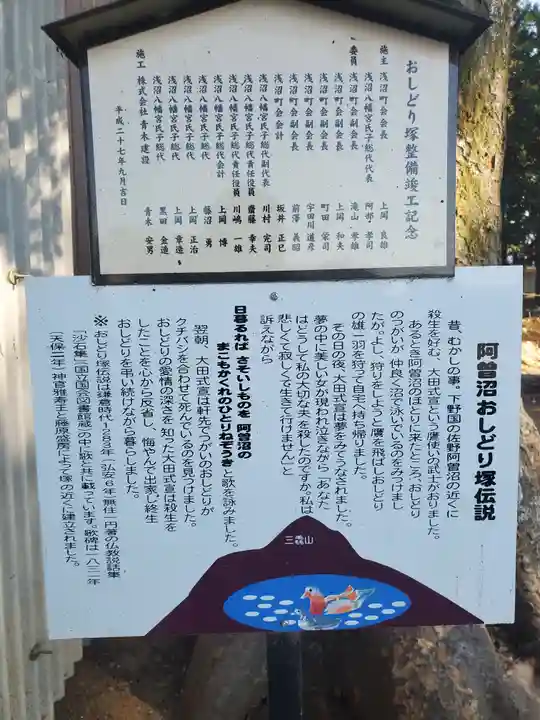 おしどり塚整備竣工記念
施主 浅沼町会会長 上岡 良雄
浅沼八幡宮氏子総代代表 阿部 孝司
委員 浅沼町会副会長 滝山 孝雄
浅沼町会副会長 上岡 和夫
浅沼町会副会長 町田 栄司
浅沼町会副会長 宇田川 道彦
浅沼町会副会長 前澤 義昭
浅沼町会会計 坂井 正巳
浅沼八幡宮氏子総代副代表 川村 完司
浅沼八幡宮氏子総代責任役員 齋藤 幸夫
浅沼八幡宮氏子総代責任役員 川嶋 一雄
浅沼八幡宮氏子総代会計 上岡 博
浅沼八幡宮氏子総代 藤沼 勇
浅沼八幡宮氏子総代 上岡 正治
浅沼八幡宮氏子総代 上岡 章逵
浅沼八幡宮氏子総代 黒田 金造
施工 株式会社 青木建設 青木 安男
平成二十七年九月吉日
阿曽沼おしどり塚伝説
昔、むかしの事、下野国の佐野阿曽沼の近くに
殺生を好む、大田式宣という鷹使いの武士がおりました。
あるとき阿曽沼のほとりに来たところ、おしどり
のつがいが 仲良く沼で泳いでいるのをみつけまし
たが、よし、狩りをしようと鷹を飛ばしおしどり
の雄一羽を狩って自宅へ持ち帰りました。
その日の夜、大田式宣は夢をみてうなされました。
夢の中に美しい女が現われ泣きながら「あなた
はどうして私の大切な夫を殺したのですか。私は
悲しくて寂しくて生きて行けません」と
訴えながら
日暮るれば さそいしものを 阿曽沼の
まこもかくれのひとりねぞうき と歌を詠みました。
翌朝、大田式宣は軒先でつがいのおしどりが
クチバシを合わせて死んでいるのを見つけました。
おしどりの愛情の深さを知った大田式宣は殺生を
したことを心から反省し、悔やんで出家し終生
おしどりを弔い続けながら暮らしました。
※おしどり塚伝説は鎌倉時代1283年(弘安6年無住一円著の仏教説話集
「沙石集」(国立国会図書館蔵)の中に歌と共に載っています。歌碑は一八三一年
(天保二年)神官雅寿王と藤原盛房によって塚の近くに建立されました。
三毳山